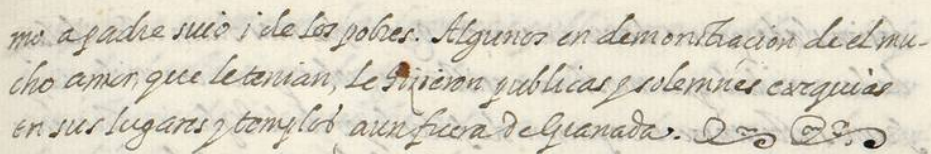 mo a padre suio i de los pobres. Algunos en demonstracion de el mu-
cho amor, que le tenian, le hicieron publicas y solemnes exequias
en sus lugares y templos aun fuera de Granada.